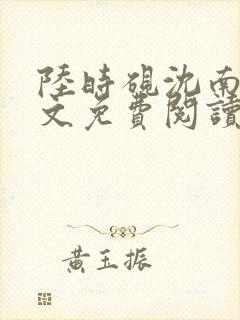 陸時硯沈南
文免費閱讀
黃玉振